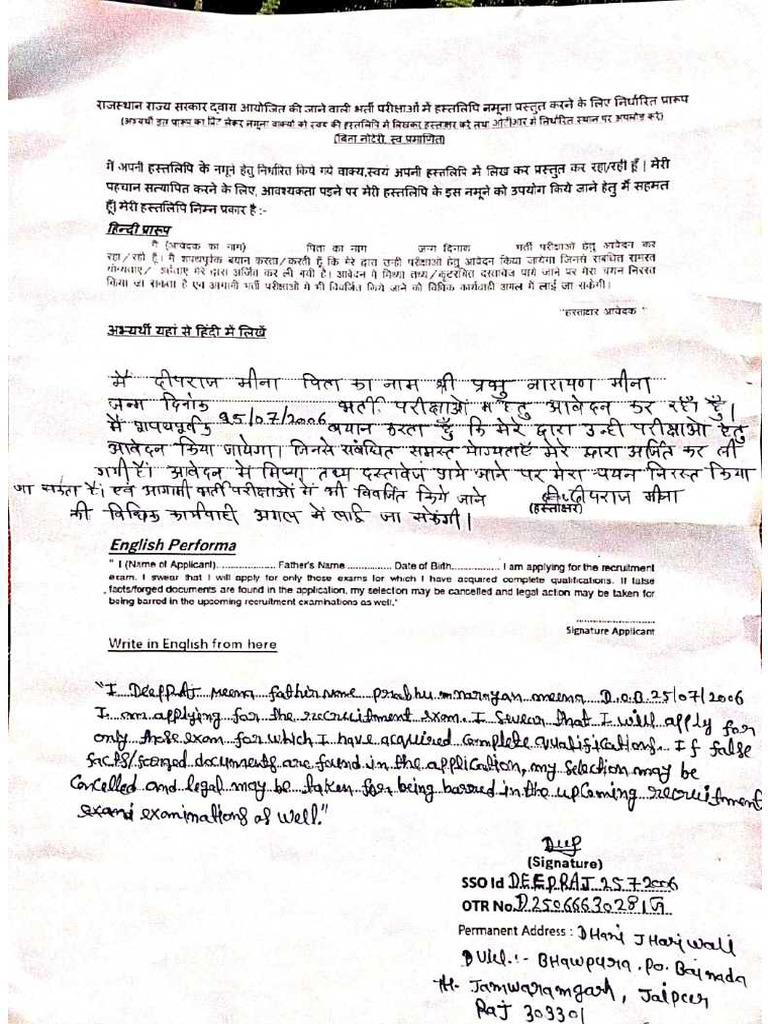 राजस्थान राज्य सरकार द्वारा आयोजित की जाने वाली भर्ती परीक्षाओं में हस्तलिपि नमूना प्रस्तुत करने के लिए निर्धारित प्रारूप
(अभ्यर्थी इस प्रारूप का प्रिंट लेकर नमूना वाक्यों को स्वयं की हस्तलिपि में लिखकर हस्ताक्षर करे तथा ओटीआर में निर्धारित स्थान पर अपलोड करे)
(बिना नोटेरी, स्व प्रमाणित)
मैं अपनी हस्तलिपि के नमूने हेतु निर्धारित किये गये वाक्य,स्वयं अपनी हस्तलिपि में लिख कर प्रस्तुत कर रहा/रही हूँ | मेरी
पहचान सत्यापित करने के लिए, आवश्यकता पड़ने पर मेरी हस्तलिपि के इस नमूने को उपयोग किये जाने हेतु मैं सहमत
हूँ| मेरी हस्तलिपि निम्न प्रकार है :-
हिन्दी प्रारूप
मैं (आवेदक का नाम) पिता का नाम जन्म दिनांक भर्ती परीक्षाओं हेतु आवेदन कर
रहा / रही हूँ। मैं शपथपूर्वक बयान करता/करती हूँ कि मेरे द्वारा उन्ही परीक्षाओं हेतु आवेदन किया जायेगा जिनसे संबंधित समस्त
योग्यताएं/ अर्हताए मेरे द्वारा अर्जित कर ली गयी है। आवेदन में मिथ्या तथ्य/कूटरचित दस्तावेज पाये जाने पर मेरा चयन निरस्त
किया जा सकता है एवं आगामी भर्ती परीक्षाओं में भी विवर्जित किये जाने की विधिक कार्यवाही अमल में लाई जा सकेगी।
"हस्ताक्षर आवेदक"
अभ्यर्थी यहां से हिंदी में लिखें
मैं दीपराज मीना पिता का नाम श्री प्रभु नारायण मीना
जन्म दिनांक 25/07/2006 भर्ती परीक्षाओं में हेतु आवेदन कर रहा हूँ।
मैं शपथपूर्वक बयान करता हूँ कि मेरे द्वारा उन्ही परीक्षाओं हेतु
आवेदन किया जायेगा। जिनसे संबंधित समस्त योग्यताएँ मेरे द्वारा अर्जित कर ली
गयी है। आवेदन में मिथ्या तथ्य दस्तावेज पाये जाने पर मेरा चयन निरस्त किया
जा सकता है। एवं आगामी भर्ती परीक्षाओं में भी विवर्जित किये जाने दीपराज मीना
(हस्ताक्षर)
की विधिक कार्यवाही अमल में लाई जा सकेगी।
English Performa
" I (Name of Applicant)..................... Father's Name .............. Date of Birth.............. I am applying for the recruitment
exam. I swear that I will apply for only those exams for which I have acquired complete qualifications. If false
facts/forged documents are found in the application, my selection may be cancelled and legal action may be taken for
being barred in the upcoming recruitment examinations as well."
Signature Applicant
Write in English from here
"I DeepRAJ meena father name prabhu narayan meena D.O.B 25/07/2006
I am applying for the recruitment exam. I swear that I will apply for
only those exam for which I have acquired complete qualifications. If false
facts/forged documents are found in the application, my selection may be
cancelled and legal may be taken for being barred in the upcoming recruitment
examinations as well."
Deep
(Signature)
SSO Id DEEPRAJ2572006
OTR No.
Permanent Address : DHani JHariwali
BHawpura. Po. Bainada
TH. Jamwaramgarh, Jaipur
RAJ 303301